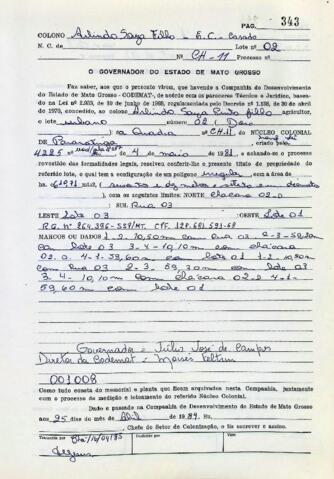 PAG. 343
COLONO Arlindo Saya Filho - E.C. - Casado
N. C. de Lote nº 02
Nº CH-11 Processo nº
O GOVERNADOR DO ESTADO DE MATO GROSSO
Faz saber, aos que o presente virem, que havendo a Companhia de Desenvolvimento
do Estado de Mato Grosso - CODEMAT-, de acordo com os pareceres Técnico e Jurídico, basea-
do na Lei nº 2.003, de 10 de junho de 1965, regulamentada pelo Decreto nº 1.138, de 30 de abril
de 1970, concedido, ao colono Arlindo Saya Filho agricultor, o
lote urbano número 02 (Dois
) na Quadra CH.11 do NÚCLEO COLONIAL
de Paranatinga criado pela
4225 de 4 de maio de 1981 e achando-se o processo
revestido das formalidades legais, resolveu conferir-lhe o presente título de propriedade
do referido lote, o qual tem a configuração de um polígono irregular com a área de
com os seguintes limites: NORTE chácara 02-0
) SUL Rua 03
LESTE Lote 03 OESTE Lote 01
MARCOS OU DADOS 1-2 10,50m com Rua 03 2-3-59,30m
com lote 03 3-4-10,10m com chácara
02.0 4-1-59,60m com lote 01 1-2 10,50m
com Rua 03 2-3-59,30m com lote 03
3-4-10,10m com chácara 02.0 4-1-
59,60m com lote 01
Governador - Júlio José de Campos
Diretor da Codemat - Moisés Feltrin
001008
Como tudo consta do memorial e planta que ficam arquivadas nesta Companhia, juntamente
com o processo de medição e loteamento do referido Núcleo Colonial.
Dado e passado na Companhia de Desenvolvimento do Estado de Mato Grosso
aos 25 dias do mês de Abril de 1984. Eu,
, Chefe do Setor de Colonização, o fiz escrever e assino.
Transcrito por Confere Visto